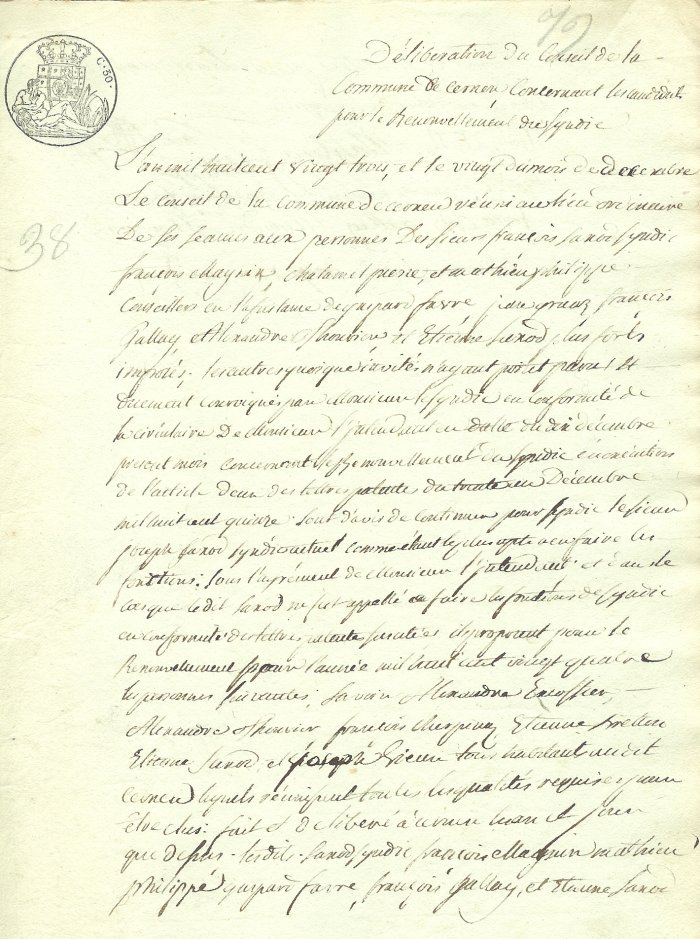 72
C. 50.
Déliberation du Conseil de la
Commune de cernex Concernant les candidats
pour le Renouvellement du Syndic
38
L'an mil huit cent vingt trois, et le vingt du mois de decembre
Le Conseil de la commune de cernex réuni au lieu ordinaire
De ses seances aux personnes Des sieurs françois Sanod Syndic
françois Magnin, Chatamel pierre, et mathieu philippe
Conseillers en l'assistance de gaspard favre jean françois
Gallay et Alexandre Thouvier et Etienne Sanod plus forts
imposés; les autres quoique invités n'ayant point parus et
duement convoqués par Monsieur le Syndic en conformité de
la circulaire De Monsieur l'Intendant en datte du dix décembre
present mois concernant le Renouvellement du Syndic en exécution
de l'article deux des lettres patentes du trente un Décembre
mil huit cent quinze sont d'avis de continuer pour Syndic le sieur
joseph Sanod syndic actuel comme étant le plus apte a en faire les
fonctions: sous l'agrément de Monsieur l'Intendant et en cas
lorsque le dit Sanod ne fut appellé a faire les fonctions de Syndic
en conformité des lettres patente susdittes ils proposent pour le
Renouvellement pour l'année mil huit cent vingt quatre
les personnes suivantes, Savoir Alexandre
Alexandre Thouvier françois Etienne
Etienne Sanod, et joseph tous habitant audit
cernex lesquels réunissent toutes les qualités requises pour
être elus: fait et délibéré à cernex l'an et jour
que dessus - lesdits Sanod syndic françois Magnin mathieu
philippe gaspard favre, françois Gallay, et Etienne Sanod